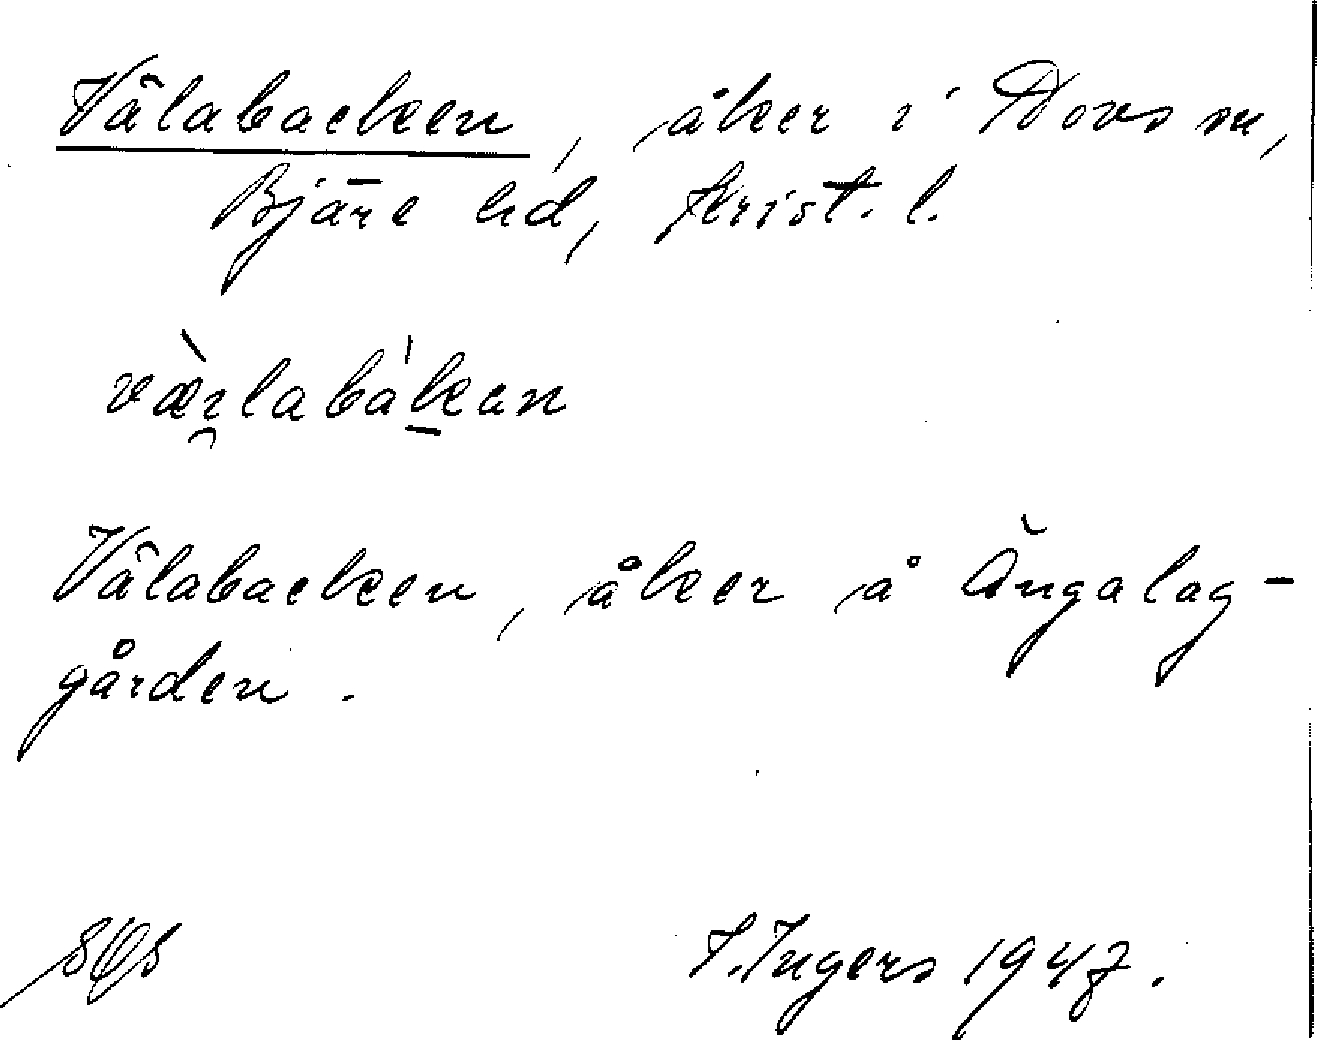 Vålabacken, åker i Hovs sn,
Bjäre hd, Krist. l.
væ̀rlabákan
Vålabacken, åker å Ängalag-
gården.
I. Ingers 1947.